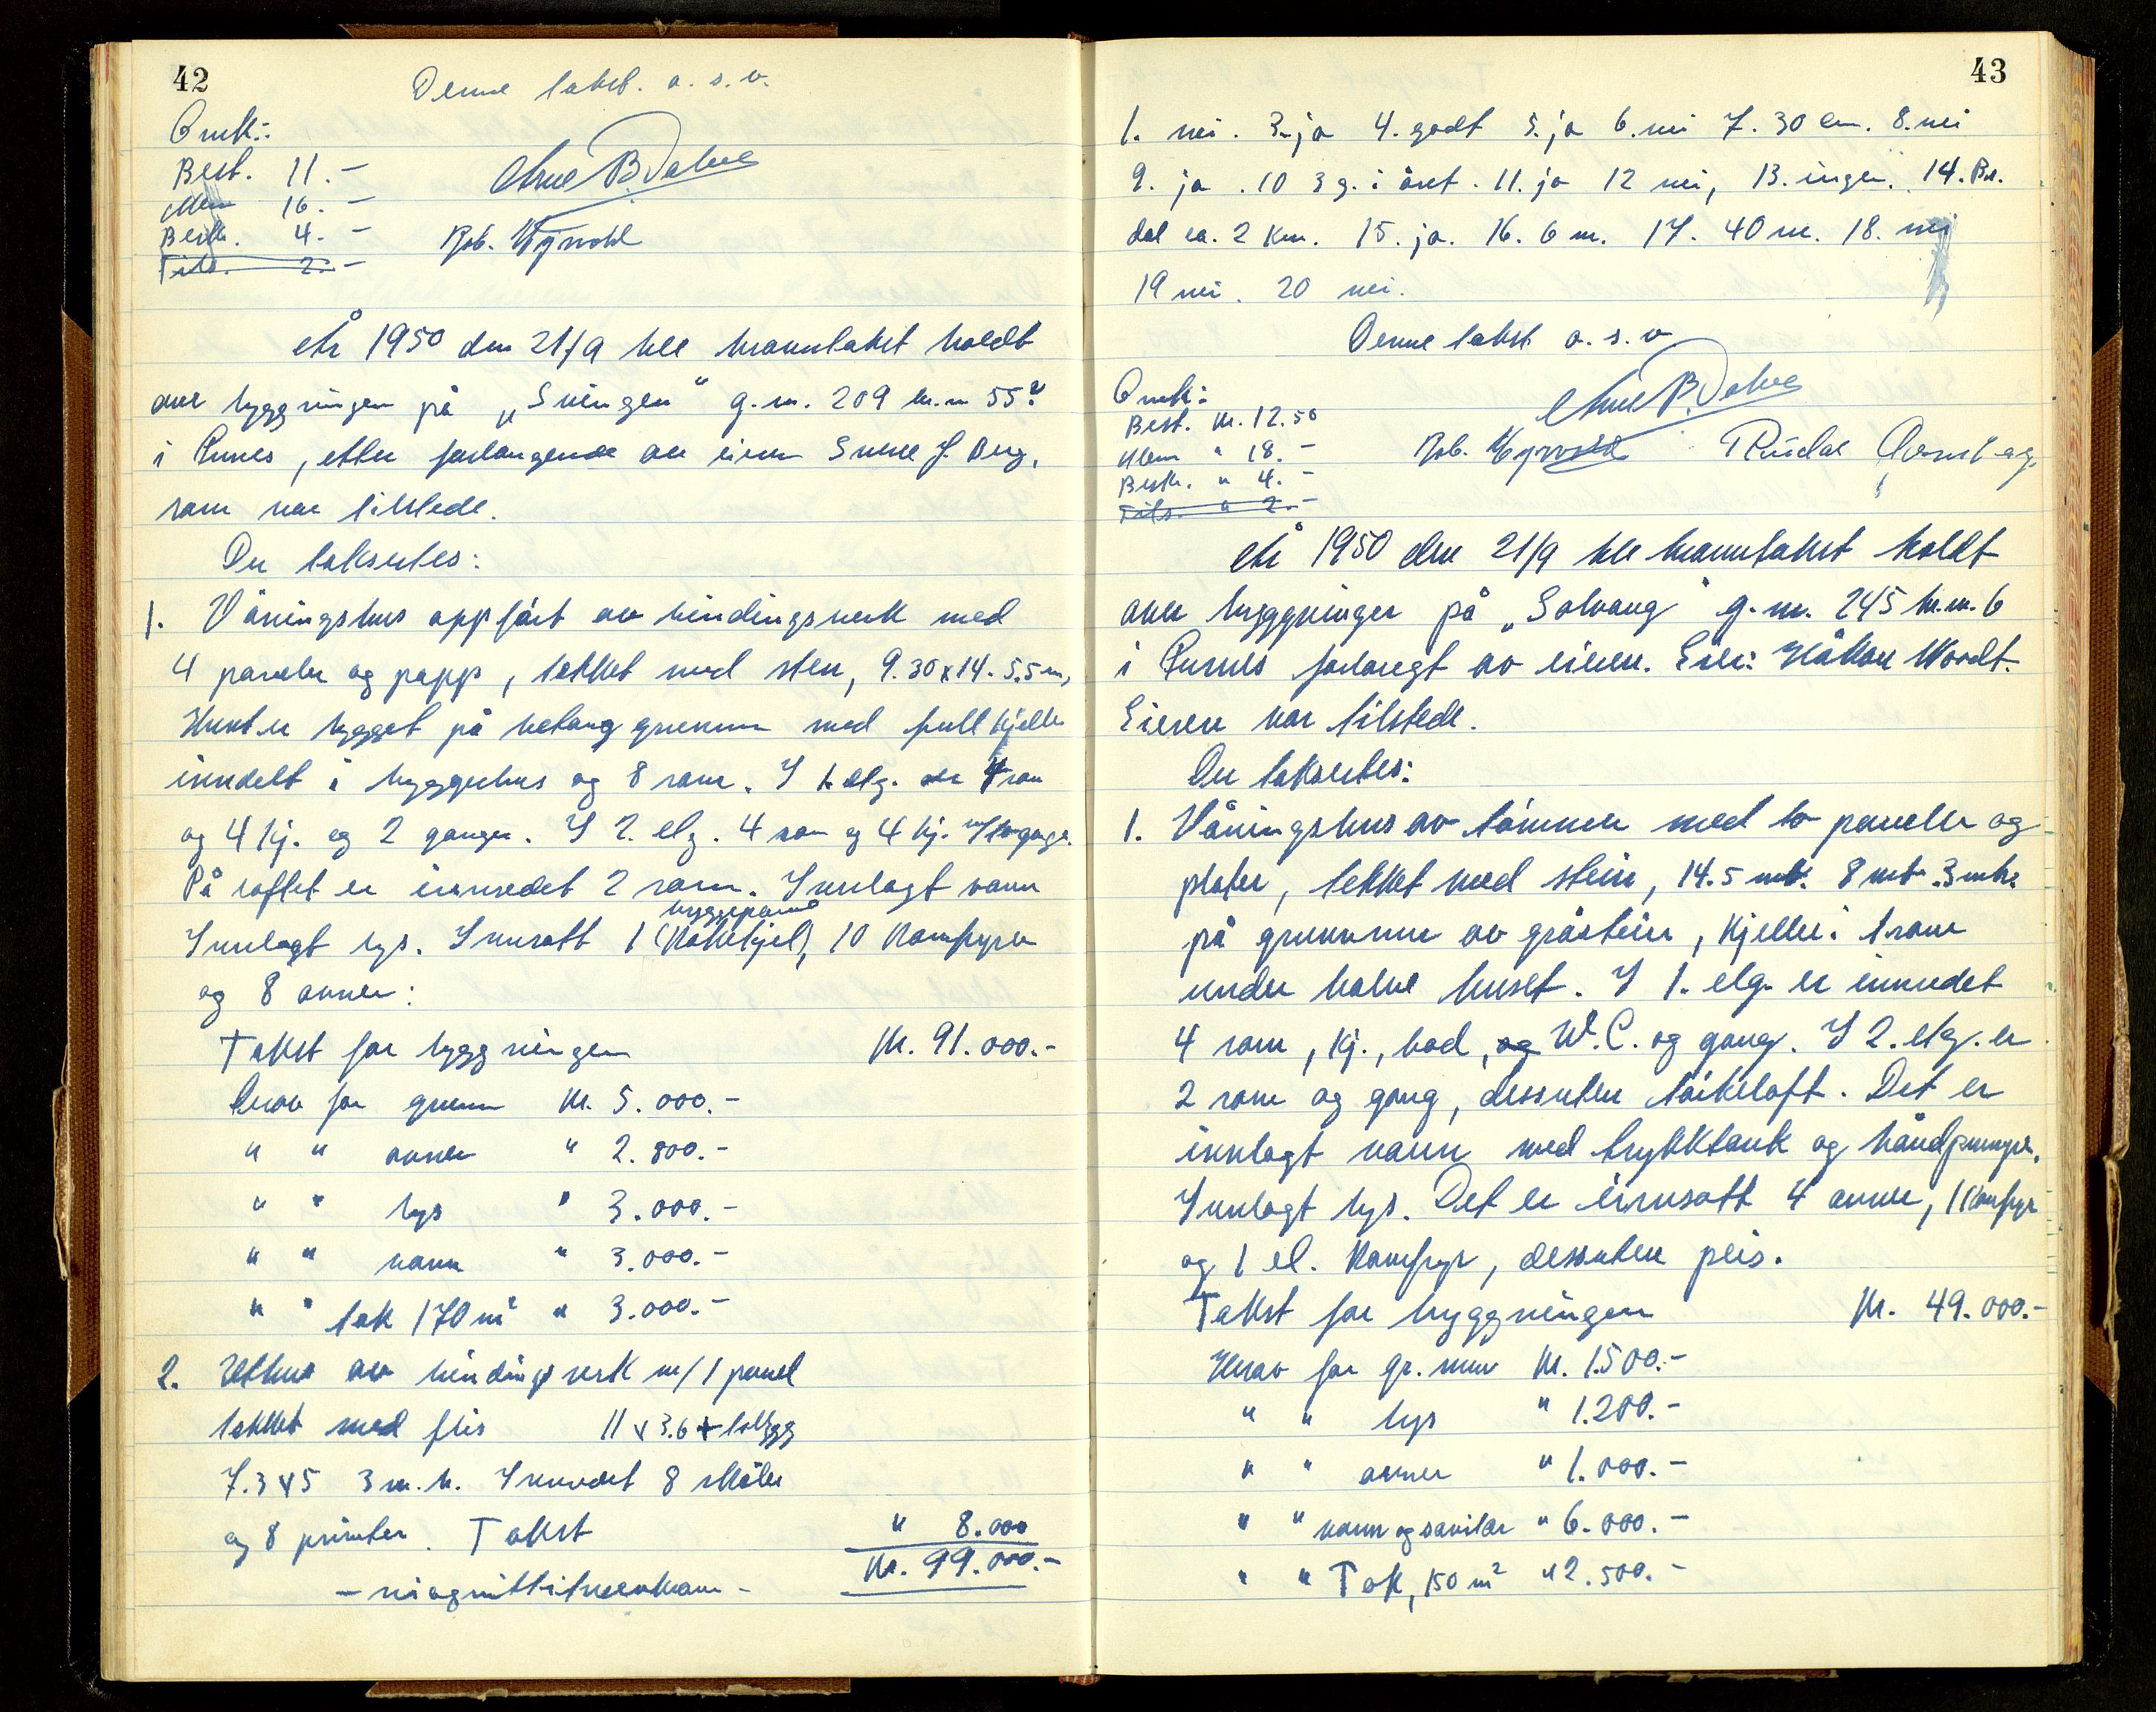 42
Denne takst. o. s. v.
Omk:
Best. 11.-
Mem 16.-
Bestk. 4.-
Tils. 2.-
Arne B. Dalve
Rob. Myrvold
År 1950 den 21/9 ble branntakst holdt
over bygningen på „Svingen" g.m. 209 br.n 55
i Furnes, etter forlangende av eieren J. Berg,
som var tilstede.
Der takseertes:
1. Våningshus oppført av bindingsverk med
4 paneler og papp, tekket med sten, 9.30x14-5.5 m,
Huset er bygget på betong grunnmur med full kjeller
inndelt i bryggerhus og 8 rom. I 1. etg. er 4 rom
og 4 kj. og 2 ganger. I 2. etg. 4 rom og 4 kj. ganger.
På loftet er innredet 2 rom. Innlagt vann
bryggepanne
Innlagt lys. Innsatt 1 (Kokekjel), 10 komfyrer
og 8 ovner:
Takst for bygningen Kr. 91.000.-
Herav for grunn Kr. 5.000.-
" " ovner " 2.800.-
" " lys " 3.000.-
" " vann " 3.000.-
" " tak 170 m² " 3.000.-
2. Uthus av bindingsverk m/1 panel
tekket med flis 11 x 3.6 + tilbygg
7.3 x 5 3 m.h. Innredet 8 skåler
og 8 priveter. Takst " 8.000
Kr. 99.000.-
- nio gnittitusenkroner -
43
1. nei. 3. ja 4. godt 5. ja 6. nei 7. 30 cm. 8. nei
9. ja. 10 3 g. i året. 11. ja 12 nei, 13. ingen. 14. Br.
dal ca. 2 km. 15. ja. 16. 6 m. 17. 40 m. 18. nei
19 nei. 20 nei.
Denne takst o. s. v
Omk:
Best. kr. 12.50
Mem " 18.-
Bestk. " 4.-
Tils. " 2.-
Arne B. Dalve
Rob. Myrvold
År 1950 den 21/9 ble branntakst holdt
over bygninger på „Solvang" g.m. 245 br.n. 6
i Furnes forlangt av eieren. Eier: Håkon Woodt.
Eieren var tilstede.
Der takseertes:
1. Våningshus av tømmer med to paneler og
plater, tekket med stein, 14.5 mtr. 8 mtr. 3 mtr.
på grunnmur av gråstein, kjeller i 1 rom
under halve huset. I 1. etg. er innredet
4 rom, kj., bod, og W.C. og gang. I 2. etg. er
2 rom og gang, dessuten tørkeloft. Det er
innlagt vann med trykktank og håndpumpe.
Innlagt lys. Det er innsatt 4 ovner, 1 komfyr
og 1 el. komfyr, dessuten peis.
Takst for bygningen Kr. 49.000.-
Herav for gr. mur Kr. 1.500.-
" " lys " 1.200.-
" " ovner " 1.000.-
" " vann og sanitær " 6.000.-
" " Tak, 150 m² " 2.500.-